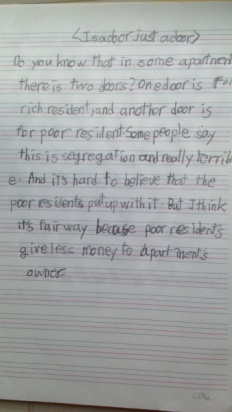 <Isadoor just adoor>
Do you know that in some apartment
there is two doors? One door is for
rich resident, and another door is
for poor resident. Some people say
this is segregation and really terribl
e. And it's hard to believe that the
poor residents put up with it. But I think
it's fair way because poor residents
give less money to apartments
owner.